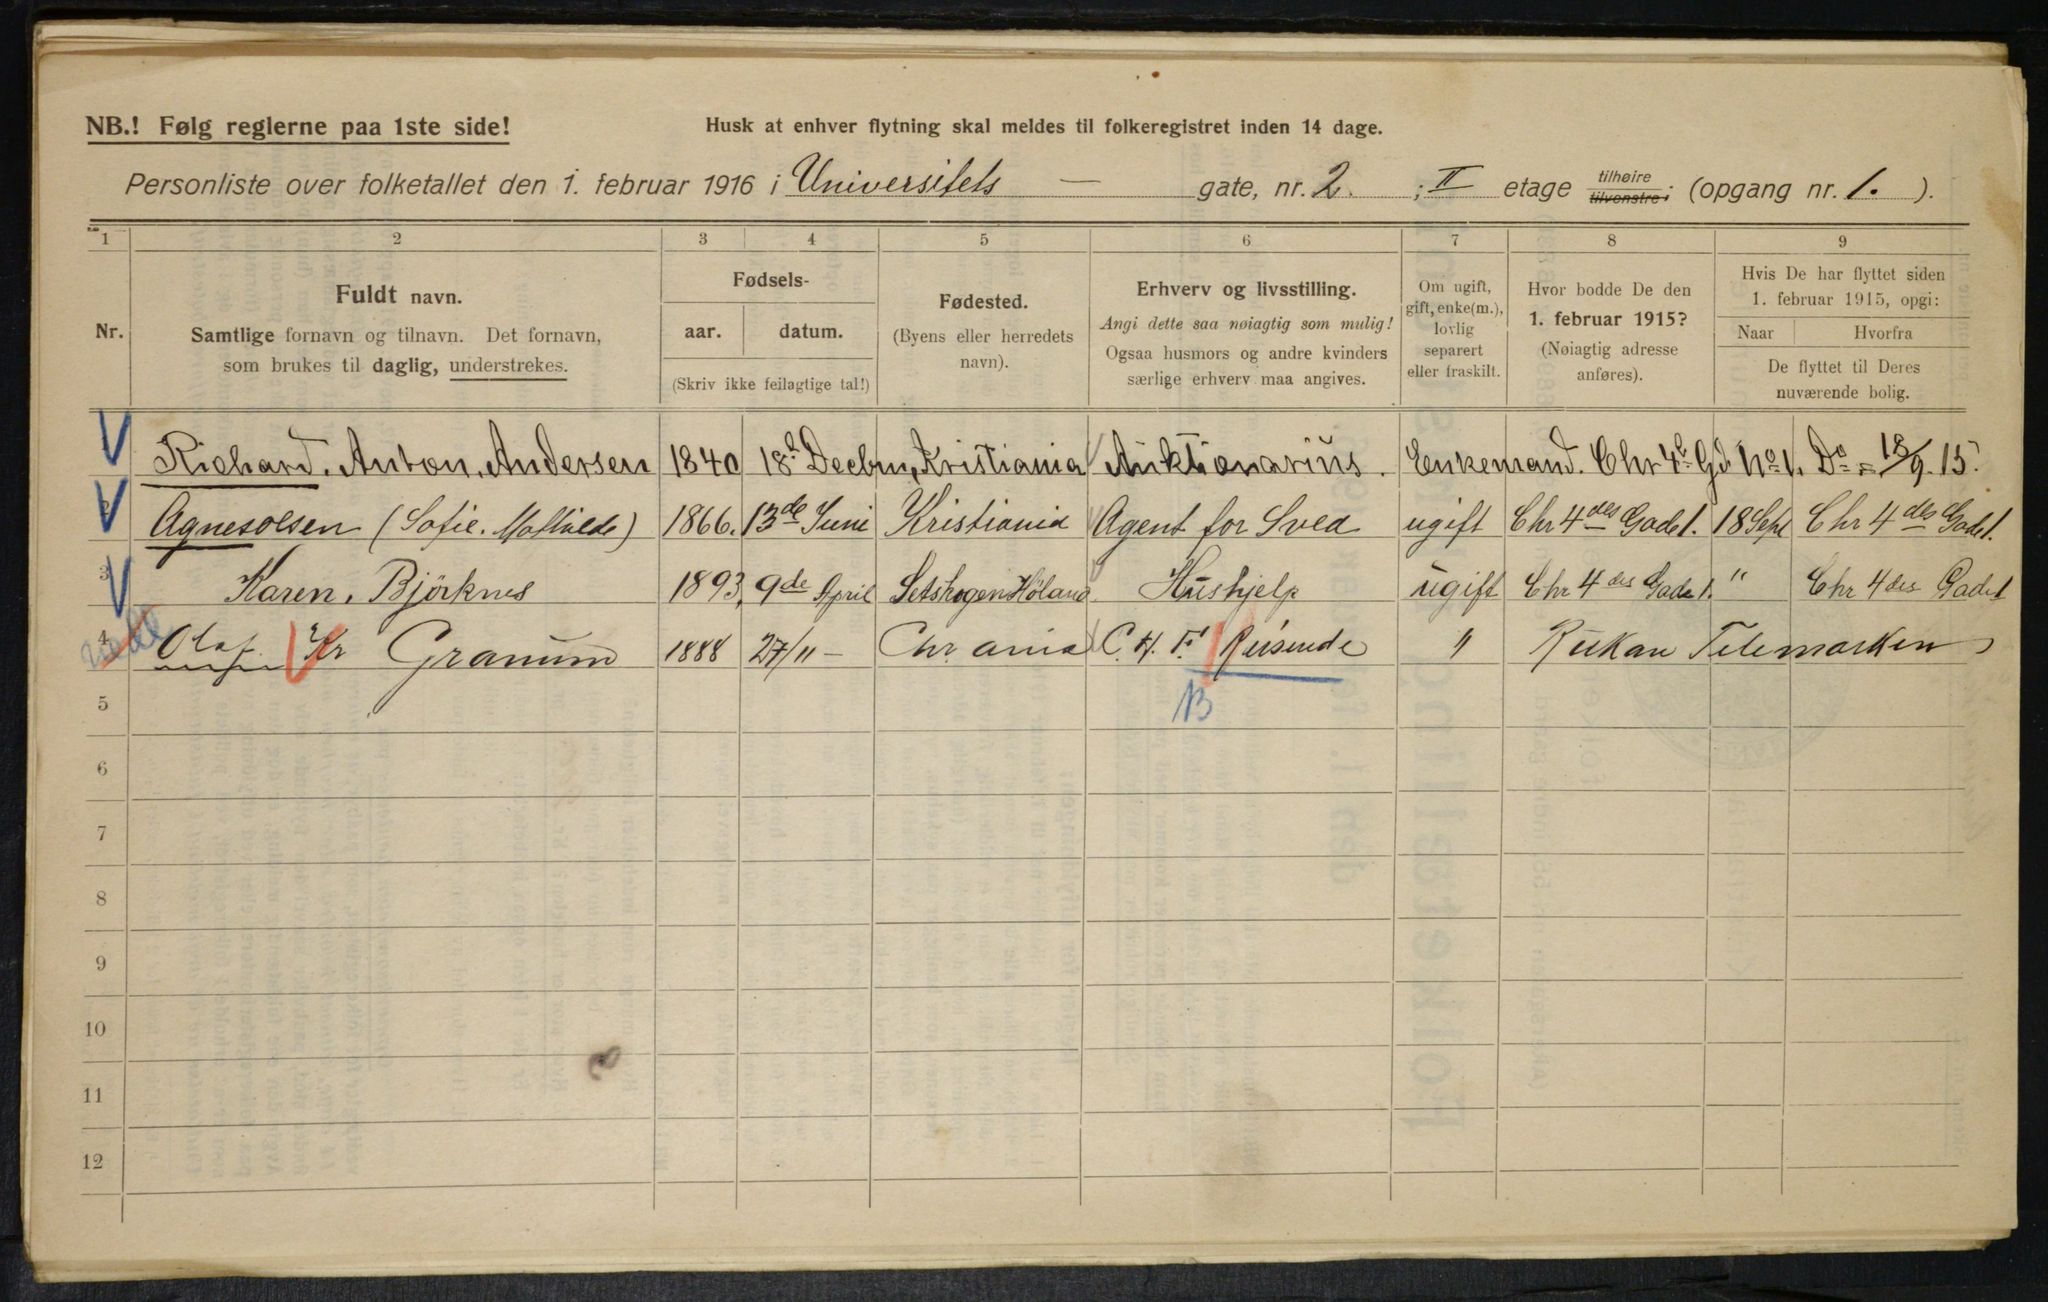 NB.! Følg reglerne paa 1ste side!
Husk at enhver flytning skal meldes til folkeregistret inden 14 dage.
Personliste over folketallet den 1. februar 1916 i Universitets — gate, nr. 2. ; II etage tilhøire tilvenstre; (opgang nr. 1. ).
1 2 3 4 5 6 7 8 9
Nr.
Fuldt navn.
Samtlige fornavn og tilnavn. Det fornavn,
som brukes til daglig, understrekes.
Fødsels-
aar. datum.
(Skriv ikke feilagtige tal!)
Fødested.
(Byens eller herredets
navn).
Erhverv og livsstilling.
Angi dette saa nøiagtig som mulig!
Ogsaa husmors og andre kvinders
særlige erhverv maa angives.
Om ugift,
gift, enke(m.),
lovlig
separert
eller fraskilt.
Hvor bodde De den
1. februar 1915?
(Nøiagtig adresse
anføres).
Hvis De har flyttet siden
1. februar 1915, opgi:
Naar Hvorfra
De flyttet til Deres
nuværende bolig.
Richard. Anton. Andersen 1840 18. Decbm, Kristiania Auktionarius. Enkemand. Chr 4. Gd No 1. Do = 18/9. 15.
2 Agnesolsen (Sofie. Mathilde) 1866. 13de Juni Kristiania Agent for Sved ugift Chr 4des Gade 1. 18 Sept Chr 4des Gade 1.
3 Karen. Björknes 1893, 9de April Setskogen Höland Hushjelp ugift Chr 4des Gade 1. " Chr 4des Gade 1
4 Olaf Kr Granum 1888 27/11 — Chrania C. H. F. Reisende " Rukan Telemarken
B
5
6
7
8
9
10
11
12